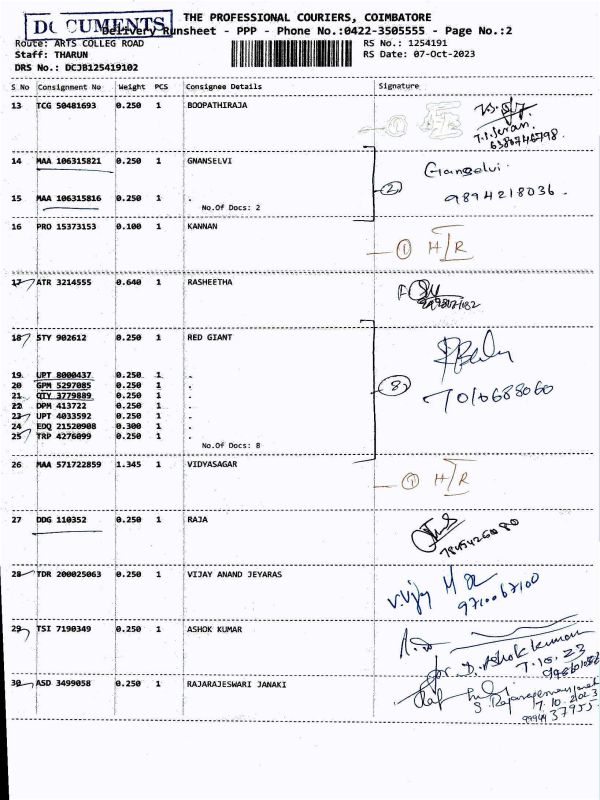 DOCUMENTS
THE PROFESSIONAL COURIERS, COIMBATORE
Delivery Runsheet - PPP - Phone No.:0422-3505555 - Page No.:2
Route: ARTS COLLEG ROAD RS No.: 1254191
Staff: THARUN RS Date: 07-Oct-2023
DRS No.: DCJB125419102
S No Consignment No Weight PCS Consignee Details Signature
13 TCG 50481693 0.250 1 BOOPATHIRAJA
6380746798
14 MAA 106315821 0.250 1 GNANSELVI Gnanselvi
15 MAA 106315816 0.250 1 . 2 9894218036
No.Of Docs: 2
16 PRO 15373153 0.100 1 KANNAN 1 H/R
17 ATR 3214555 0.640 1 RASHEETHA
18 STY 902612 0.250 1 RED GIANT
19 UPT 8000437 0.250 1 .
20 GPM 5297085 0.250 1 . 8 7010688060
21 QTY 3779889 0.250 1 .
22 DPM 413722 0.250 1 .
23 UPT 4033592 0.250 1 .
24 EDQ 21520908 0.300 1 .
25 TRP 4276099 0.250 1 .
No.Of Docs: 8
26 MAA 571722859 1.345 1 VIDYASAGAR 1 H/R
27 DDG 110352 0.250 1 RAJA
28 TDR 200025063 0.250 1 VIJAY ANAND JEYARAS V.Vijay
9710067100
29 TSI 7190349 0.250 1 ASHOK KUMAR
D. Ashok kumar
7.10.23
30 ASD 3499058 0.250 1 RAJARAJESWARI JANAKI
7.10.2023